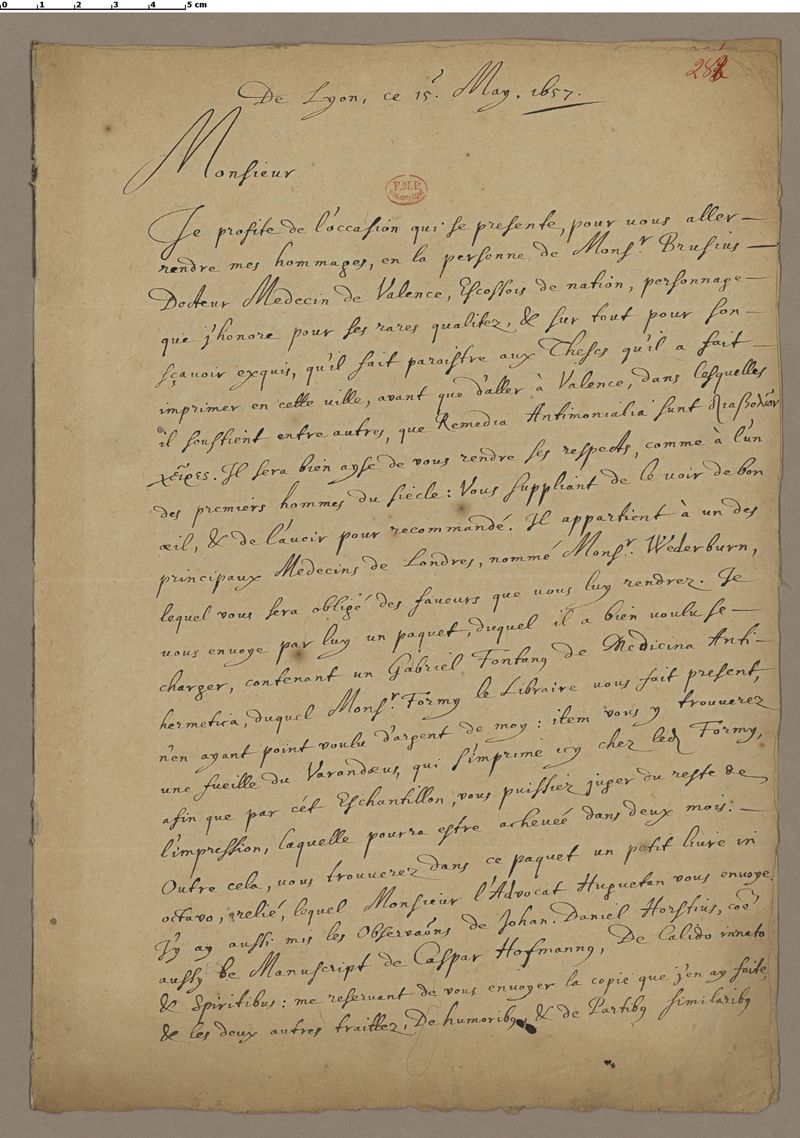 0 1 2 3 4 5 cm
288
De Lyon, ce 15.e May. 1657.
Monsieur
F.M.P.
Je profite de l'occasion qui se presente, pour vous aller —
rendre mes hommages, en la personne de Monsr. Brusius —
Docteur Medecin de Valence, Escossois de nation, personnage —
que j'honore pour ses rares qualitez, & sur tout pour son —
sçavoir exquis, qu'il fait paroistre aux Theses qu'il a fait —
imprimer en cette ville, avant que d'aller à Valence, dans lesquelles
il soustient entre autres, que Remedia Antimonialia sunt διαβόλων
χεῖρες. Il sera bien ayse de vous rendre ses respects, comme à l'un
des premiers hommes du siècle: Vous suppliant de le voir de bon
œil, & de l'avoir pour recommandé. Il appartient à un des
principaux Medecins de Londres, nommé Monsr. Wederburn,
lequel vous sera obligé des faveurs que vous luy rendrez. Je
vous envoye par luy un paquet, duquel il a bien voulu se —
charger, contenant un Gabriel Fontany de Medicina Anti-
hermetica, duquel Monsr. Formy le Libraire vous fait present,
n'en ayant point voulu d'argent de moy: item vous y trouverez
une fueille du Varandæus, qui s'imprime icy chez led Formy,
afin que par cét Eschantillon, vous puissiez juger du reste de
l'impression, laquelle pourra estre acheveé dans deux mois: —
Outre cela, vous trouverez dans ce paquet un petit livre in
octavo, relié, lequel Monsieur l'Advocat Huguetan vous envoye.
J'y ay aussi mis les Observaõns de Johan. Daniel Horstius, coẽ
aussy le Manuscript de Caspar Hofmanny, De Calido innato
& Spiritibus: me reservant de vous envoyer la copie que j'en ay faite,
& les deux autres traittez, De humoriby, & de Partiby similariby